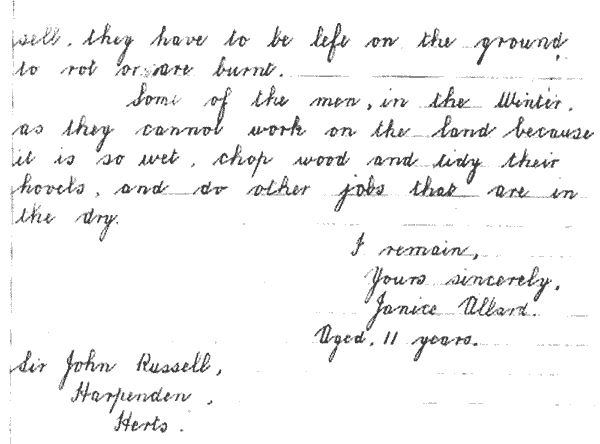 sell. they have to be left on the ground,
to rot or are burnt.
Some of the men, in the Winter.
as they cannot work on the land because
it is so wet, chop wood and tidy their
hovels, and do other jobs that are in
the dry.
I remain,
Yours sincerely,
Janice Ullard.
Aged. 11 years.
Sir John Russell,
Harpenden,
Herts.